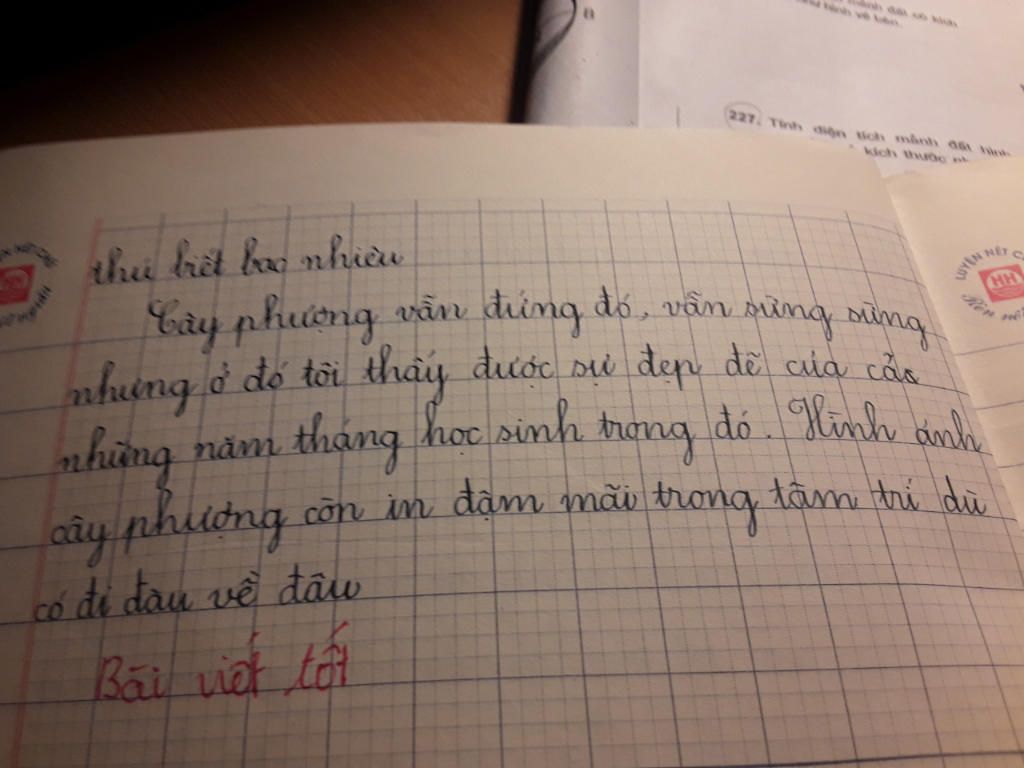 8
mảnh đất có kích
như hình vẽ bên.
227. Tính diện tích mảnh đất hình
kích thước
thui biết bao nhiêu
Cây phượng vẫn đứng đó, vẫn sừng sững
nhưng ở đó tôi thấy được sự đẹp đẽ của cả
những năm tháng học sinh trong đó. Hình ảnh
cây phượng còn in đậm mãi trong tâm trí dù
có đi đâu về đâu
Bài viết tốt
LUYỆN NÉT
HH